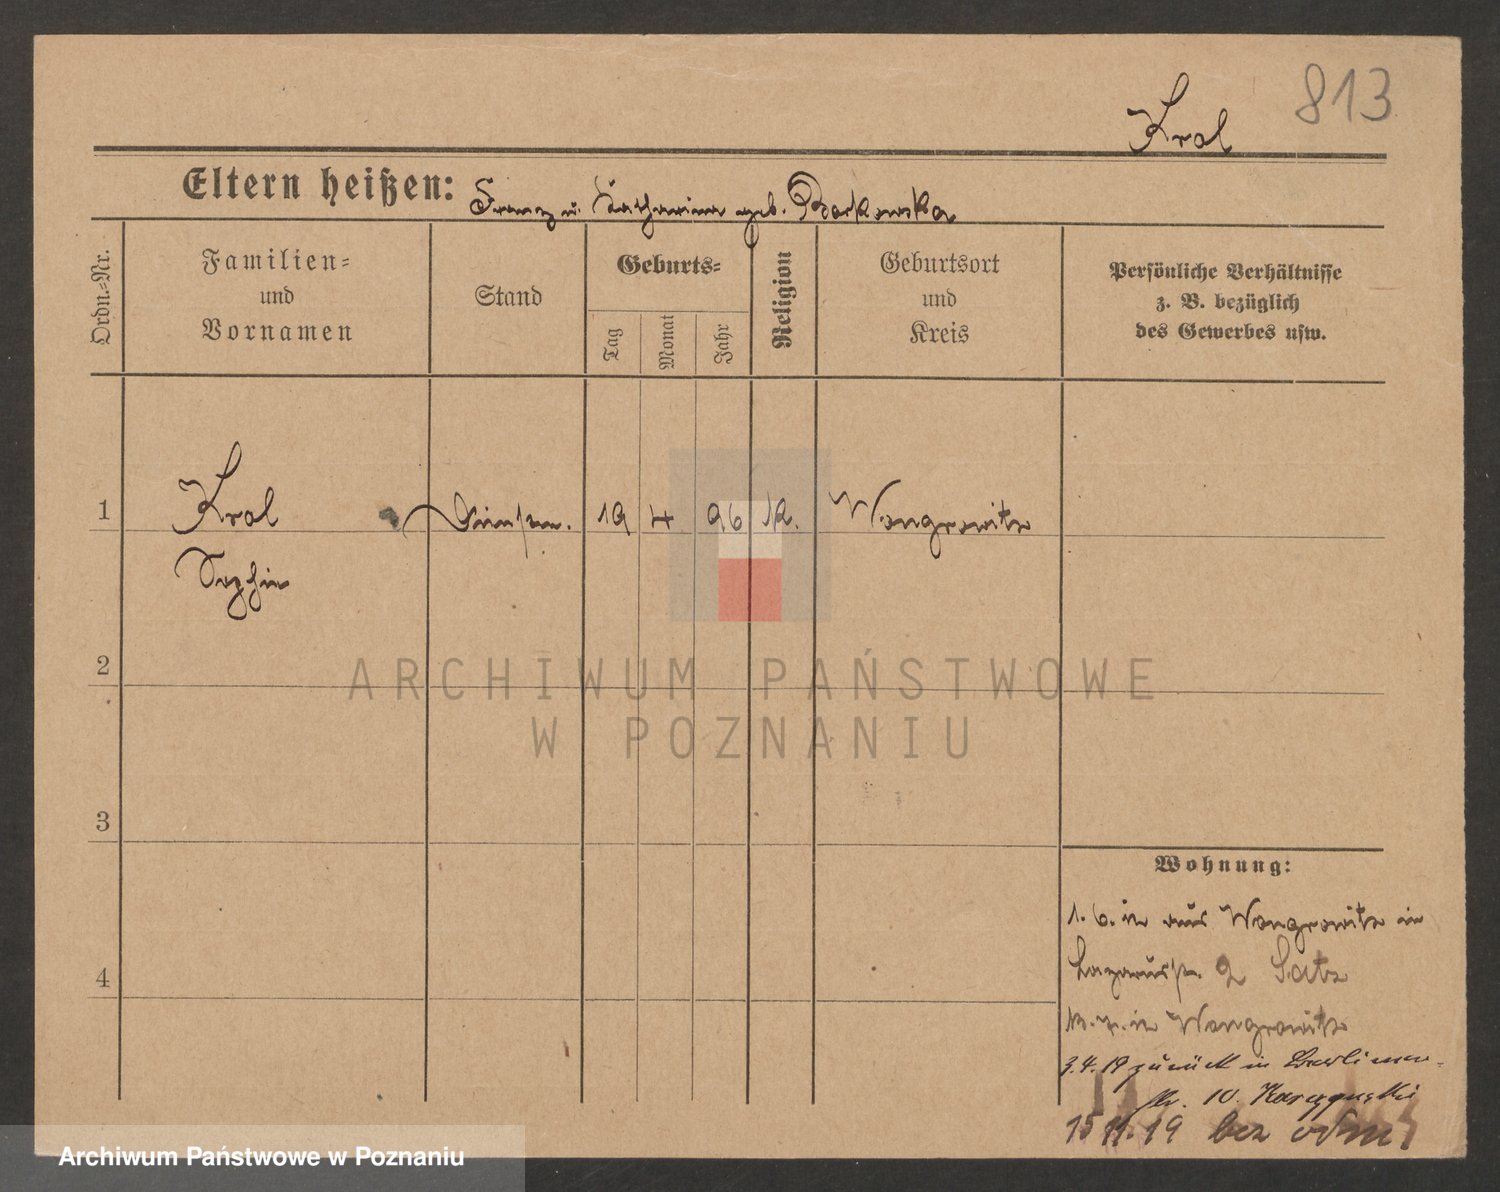 813
Krol
Eltern heißen: Franz u. Katharina geb. Borkowska
Ordn.-Nr.
Familien-
und
Vornamen
Stand
Geburts-
Tag
Monat
Jahr
Religion
Geburtsort
und
Kreis
Persönliche Verhältnisse
z. B. bezüglich
des Gewerbes usw.
1 Krol 19 4 96 K. Wongrowitz
Sophie
2
ARCHIWUM PAŃSTWOWE
W POZNANIU
3
4
Wohnung:
1. 6. aus Wongrowitz in
Lazarusstr. 2
in Wongrowitz
3.4.19 zurück in Berliner-
str. 10.
15 11. 19 bez
Archiwum Państwowe w Poznaniu